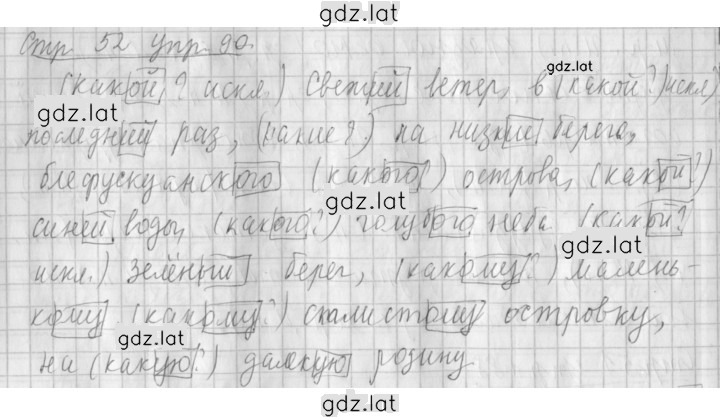 gdz.lat
Стр. 52 упр. 90.
(какой? искл.) Свежий ветер, в (какой?) искл.)
gdz.lat
последний раз, (какие?) на низкие берега,
блефускуанского (какого?) острова, (какой?)
gdz.lat
синей воды, (какого?) голубого неба (какой?
gdz.lat
искл.) зелёный берег, (какому?) малень-
кому (какому?) скалистому островку,
gdz.lat
на (какую?) далёкую родину.
gdz.lat